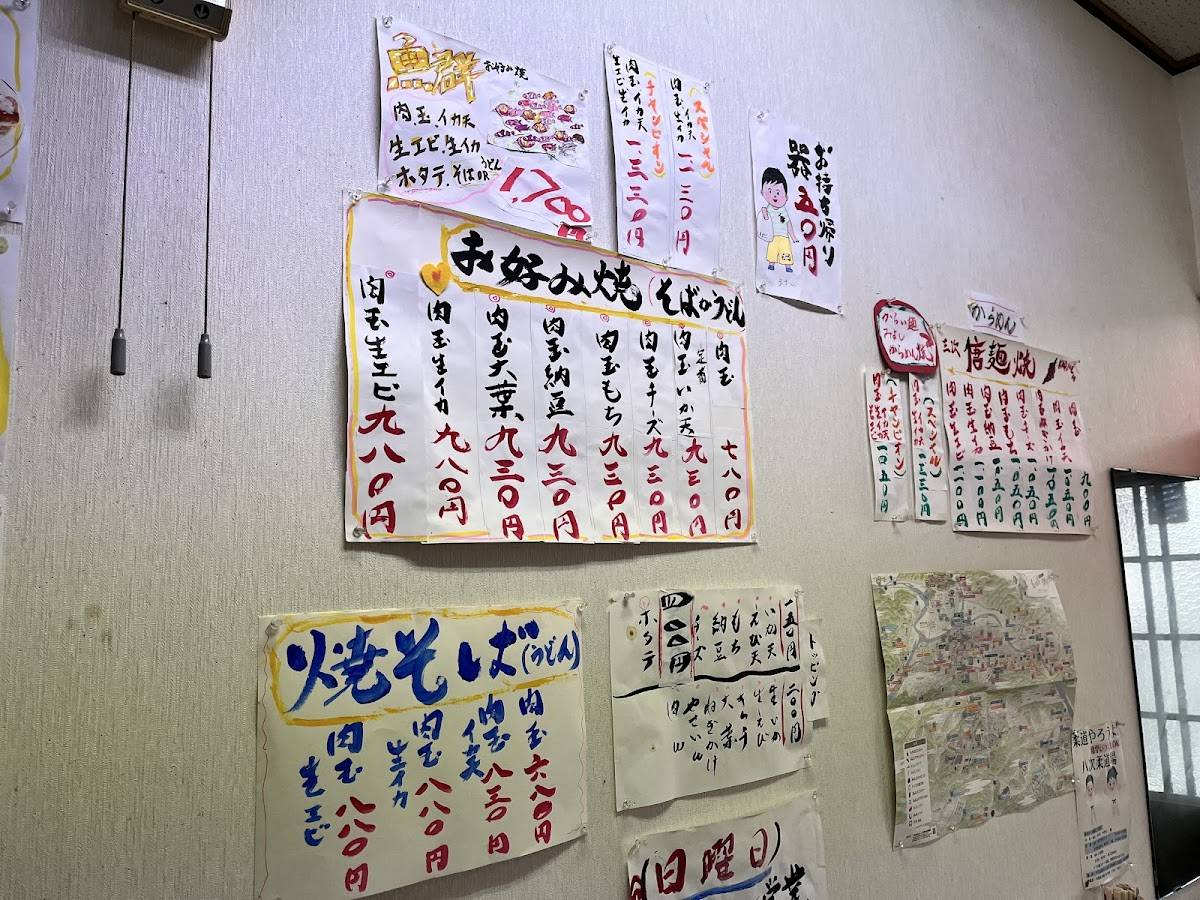 魚群
お好み焼
肉.玉.イカ天
生エビ.生イカ
ホタテ.そばORうどん
1,700円
(スペシャル)
肉.玉.イカ天
生イカ
一二三〇円
(チャンピオン)
肉玉イカ天
生エビ生イカ
一、三三〇円
お持ち帰り
器五〇円
お好み焼(そばかうどん)
肉玉 七八〇円
定番
肉玉いか天 九三〇円
肉玉チーズ 九三〇円
肉玉もち 九三〇円
肉玉納豆 九三〇円
肉玉大葉 九三〇円
肉玉生イカ 九八〇円
肉玉生エビ 九八〇円
からめん
からい麺
からめん焼
三次唐麺焼
肉玉 九〇〇円
肉玉イカ天
肉玉チーズ 一〇五〇円
肉玉もち 一〇五〇円
肉玉納豆 一〇五〇円
肉玉生イカ 一一〇〇円
肉玉生エビ 一一〇〇円
(スペシャル)
(チャンピオン)
焼そば(うどん)
肉玉 六八〇円
肉玉イカ天 八三〇円
肉玉生イカ 八八〇円
肉玉生エビ 八八〇円
トッピング
一五〇円
いか天
えび天
もち
納豆
チーズ
四〇〇円
ホタテ
二〇〇円
生いか
生えび
キムチ
大葉
ねぎかけ
やさいW
肉W
日曜日
営業
柔道やろうよ
八次柔道場